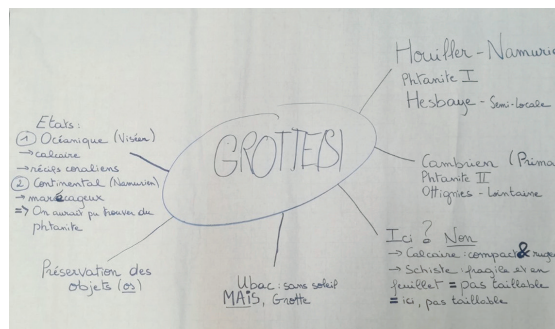 GROTTE(S)
Houiller - Namurien
Phtanite I
Hesbaye - Semi-locale
Cambrien (Prima
Phtanite II
Ottignies - Lointaine
Ici ? Non
→ Calcaire : compact & rugu
→ Schiste fragile et en
feuillet = pas taillable
= ici, pas taillable
Ubac : sans soleil
MAIS, Grotte
Préservation des
objets (os)
Etats :
① Océanique (Viséen)
→ calcaire
→ récifs coralliens
② Continental (Namurien)
→ marécageux
=> On aurait pu trouver du
phtanite